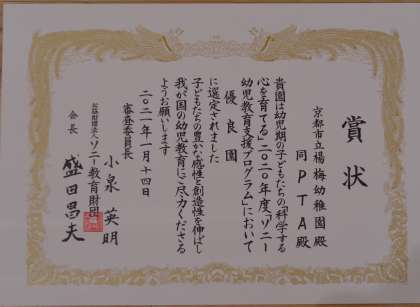 賞状
京都市立楊梅幼稚園殿
同PTA殿
貴園は幼児期の子どもたちの「科学する
心を育てる」二〇二〇年度「ソニー
幼児教育支援プログラム」において
優良園
に選定されました
子どもたちの豊かな感性と創造性を伸ばし
我が国の幼児教育にご尽力くださる
ようお願いします
二〇二一年一月十四日
審査委員長
小泉英明
公益財団法人ソニー教育財団
会長
盛田昌夫